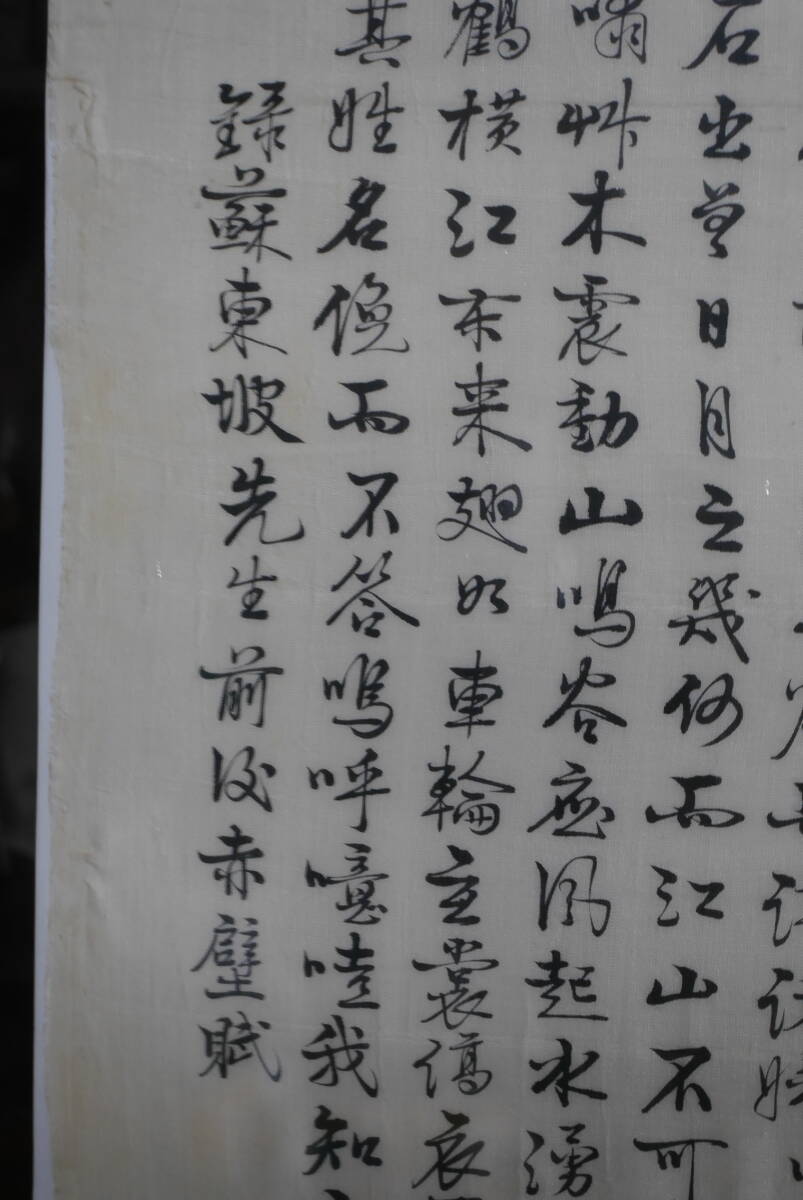 石出曾日月之幾何而江山不可
嘯艸木震動山鳴谷應風起水湧
鶴橫江東來翅如車輪玄裳縞衣
其姓名俛而不答嗚呼噫嘻我知
錄蘇東坡先生前後赤壁賦